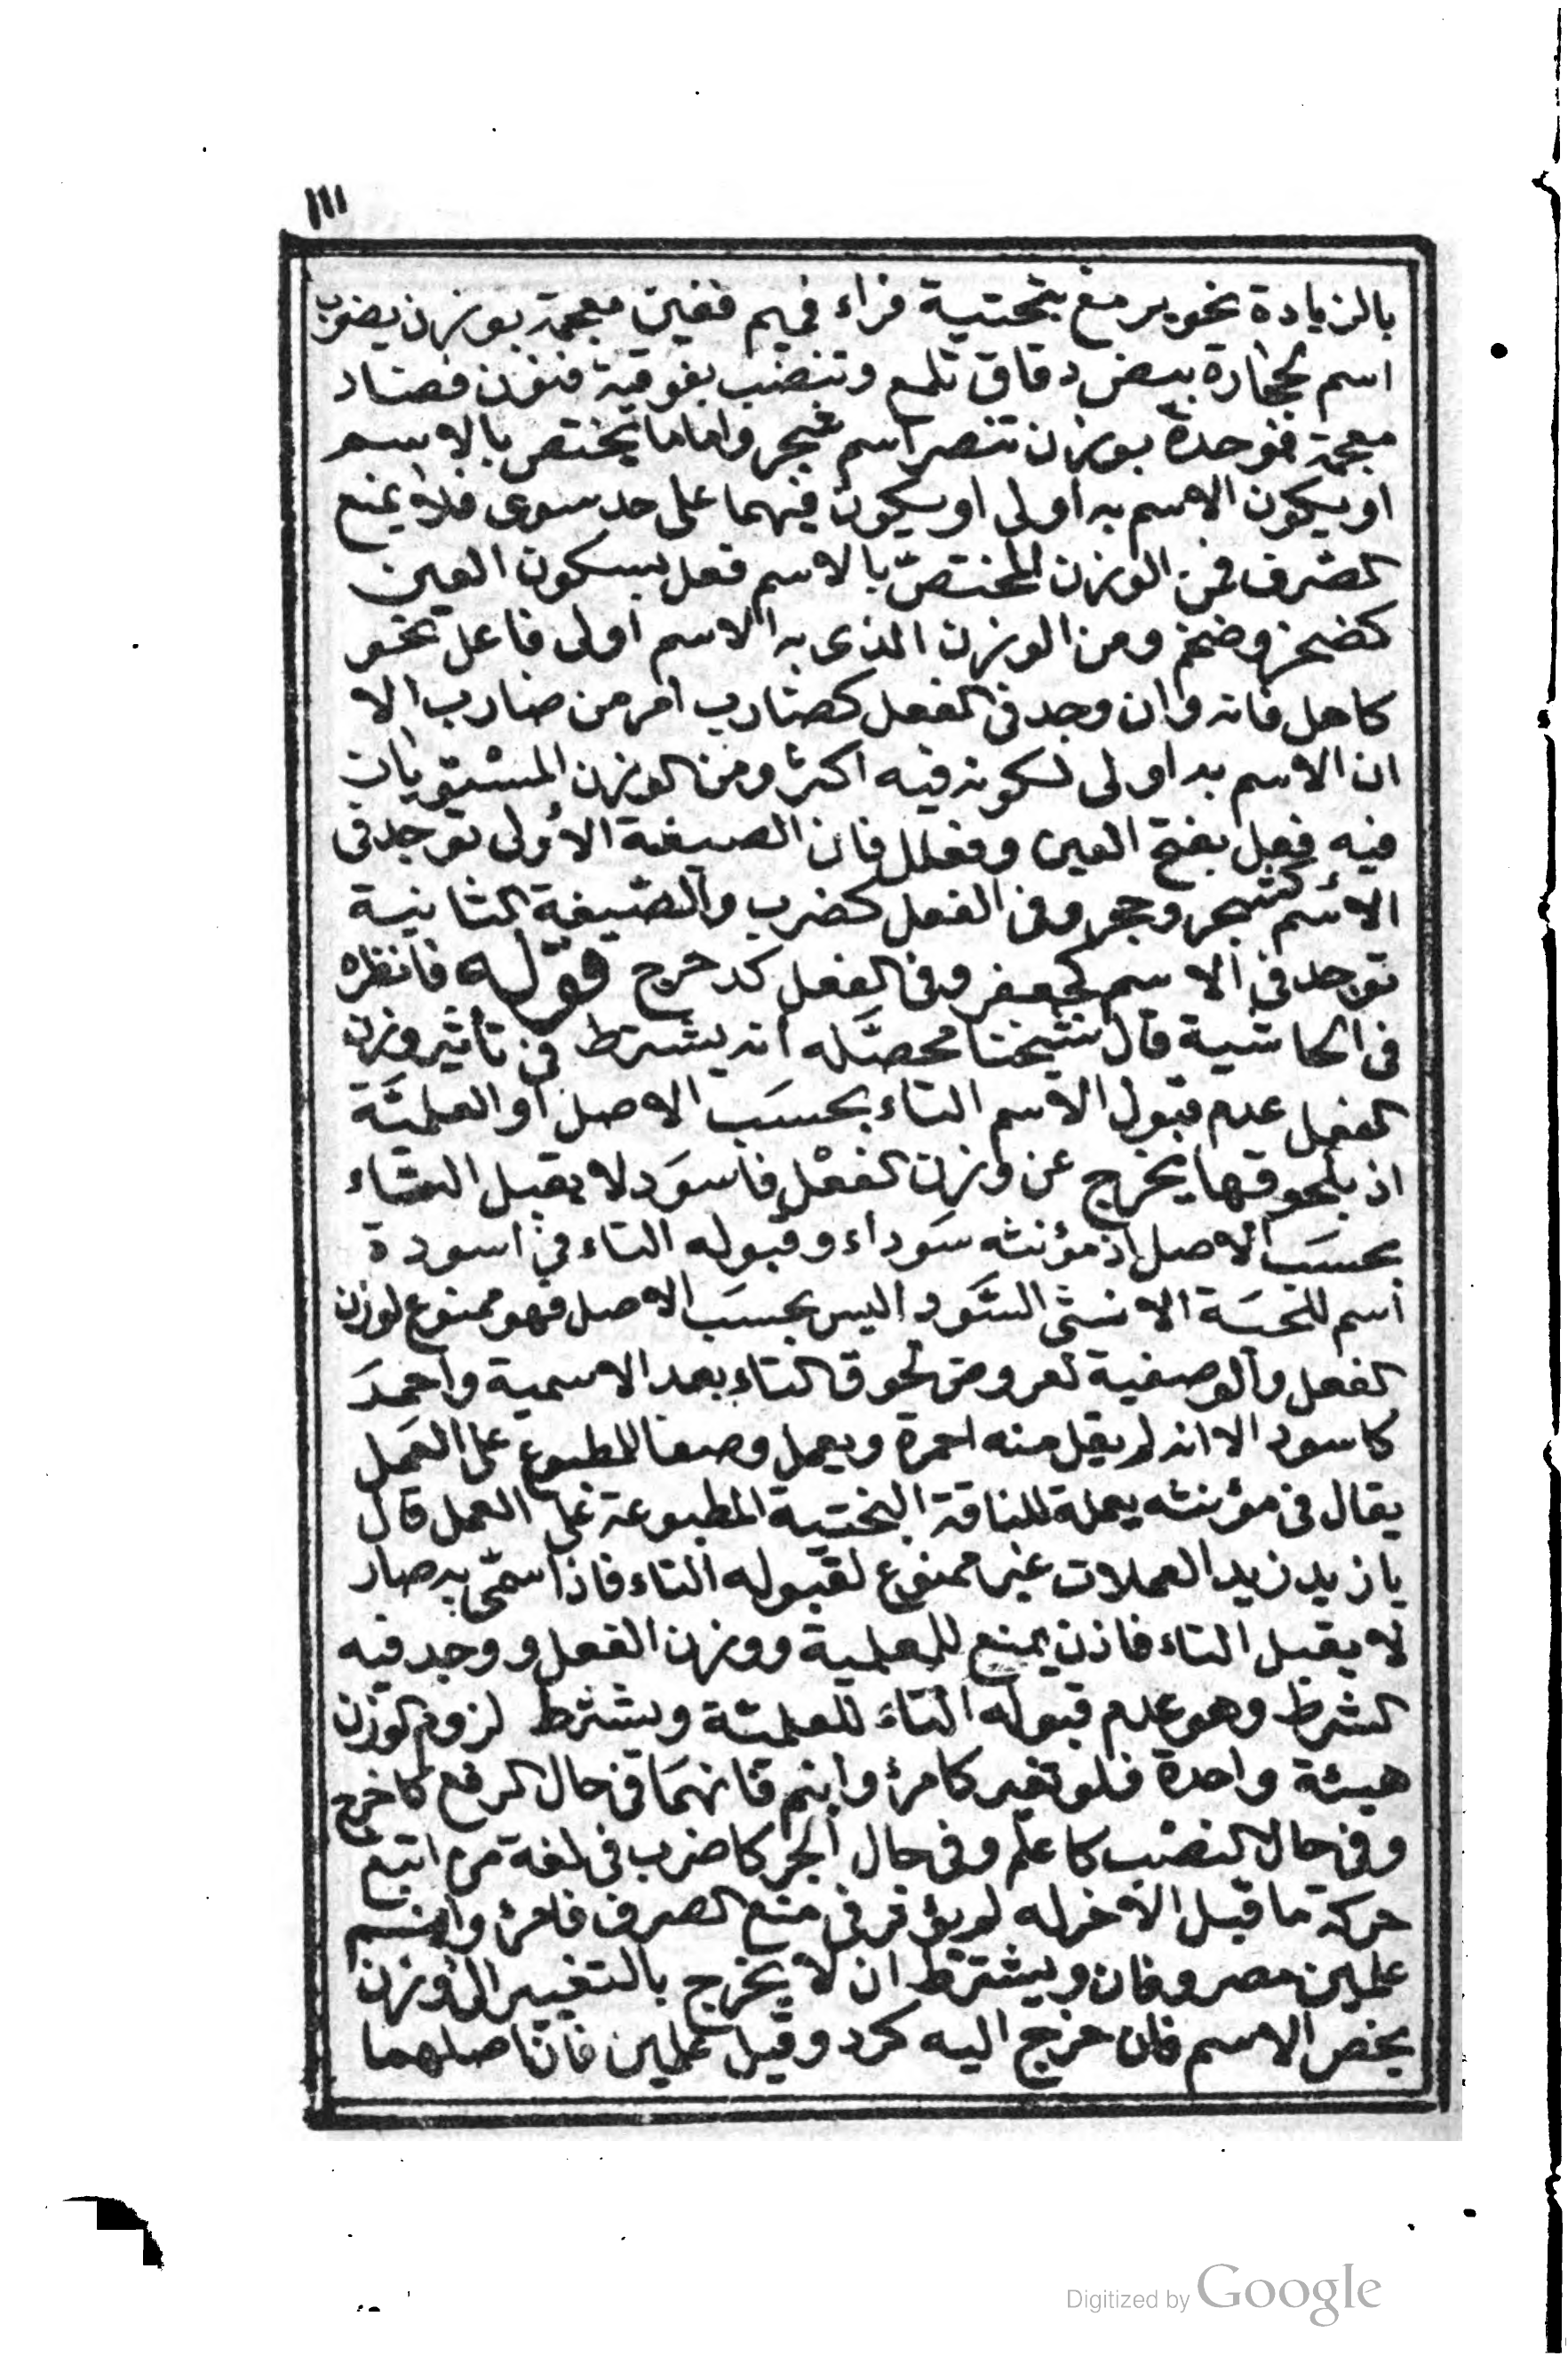 ١١١
بالزيادة نحو يرمغ بتحتية فراء فميم فغين معجمة بوزن يضرب
اسم لحجارة بيض دقاق تلمع وتنضب بفوقية فنون فضاد
معجمة فموحدة بوزن تنصر اسم شجر واما ما يختص بالاسم
او يكون الاسم به اولى او يكون فيهما على حد سوى فلا يمنع
الصرف فمن الوزن المختص بالاسم فعل بسكون العين
كضخر وضخم ومن الوزن الذى به الاسم اولى فاعل نحو
كاهل فانه وان وجد فى الفعل كضارب امر من ضارب الا
ان الاسم به اولى لكونه فيه اكثر ومن الوزن المستويان
فيه فعل بفتح العين وفعلل فان الصيغة الأولى توجد فى
الأسم كشجر وحجر وفى الفعل كضرب والصّيغة الثانية
توجد فى الاسم كجعفر وفى الفعل كدحرج قوله فانظره
فى الحاشية قال شيخنا محصّله انه يشترط فى تاثير وزن
الفعل عدم قبول الاسم التاء بحسَب الاصل او العلميّة
اذ بلحوقها يخرج عن وزن الفعْل فاسوَد لا يقبل التاء
بحسَب الاصل اذ مؤنثه سَوداء وقبوله التاء فى اسودة
اسم للحيَة الانثى السَّوداء ليس بحسَب الاصل فهو ممنوع لوزن
الفعل والوصفية لعروض لحوق التاء بعد الاسمية واحمدَ
كاسود الا انه لم يقل منه احمرة ويعمل وصفا للمطبوع على العَمل
يقال فى مؤنثه يعملة للناقة البختية المطبوعة على العمل قال
يا زيد زيد اليعملات غير ممنوع لقبوله التاء فاذا سمّى به صار
لا يقبل التاء فاذن يمنع للعلمية ووزن الفعل ووجد فيه
الشرط وهو عدم قبوله التاءَ للعلميّة ويشترط لزوم الوزن
هيئة واحدة فلو تغير كامرئ وابنم فانهمَا فى حال الرفع كاخرج
وفى حال النصْب كاعلم وفى حال الجر كاضرب فى لغة من اتبع
حركة ما قبل الاخر له لم يؤثر فى منع الصرف فامرئ وابنم
علمين مصروفان ويشترط ان لا يخرج بالتغيير الى وزن
يخص الاسم فان خرج اليه كرد وقيل علمين فانّ اصلهما
Digitized by Google